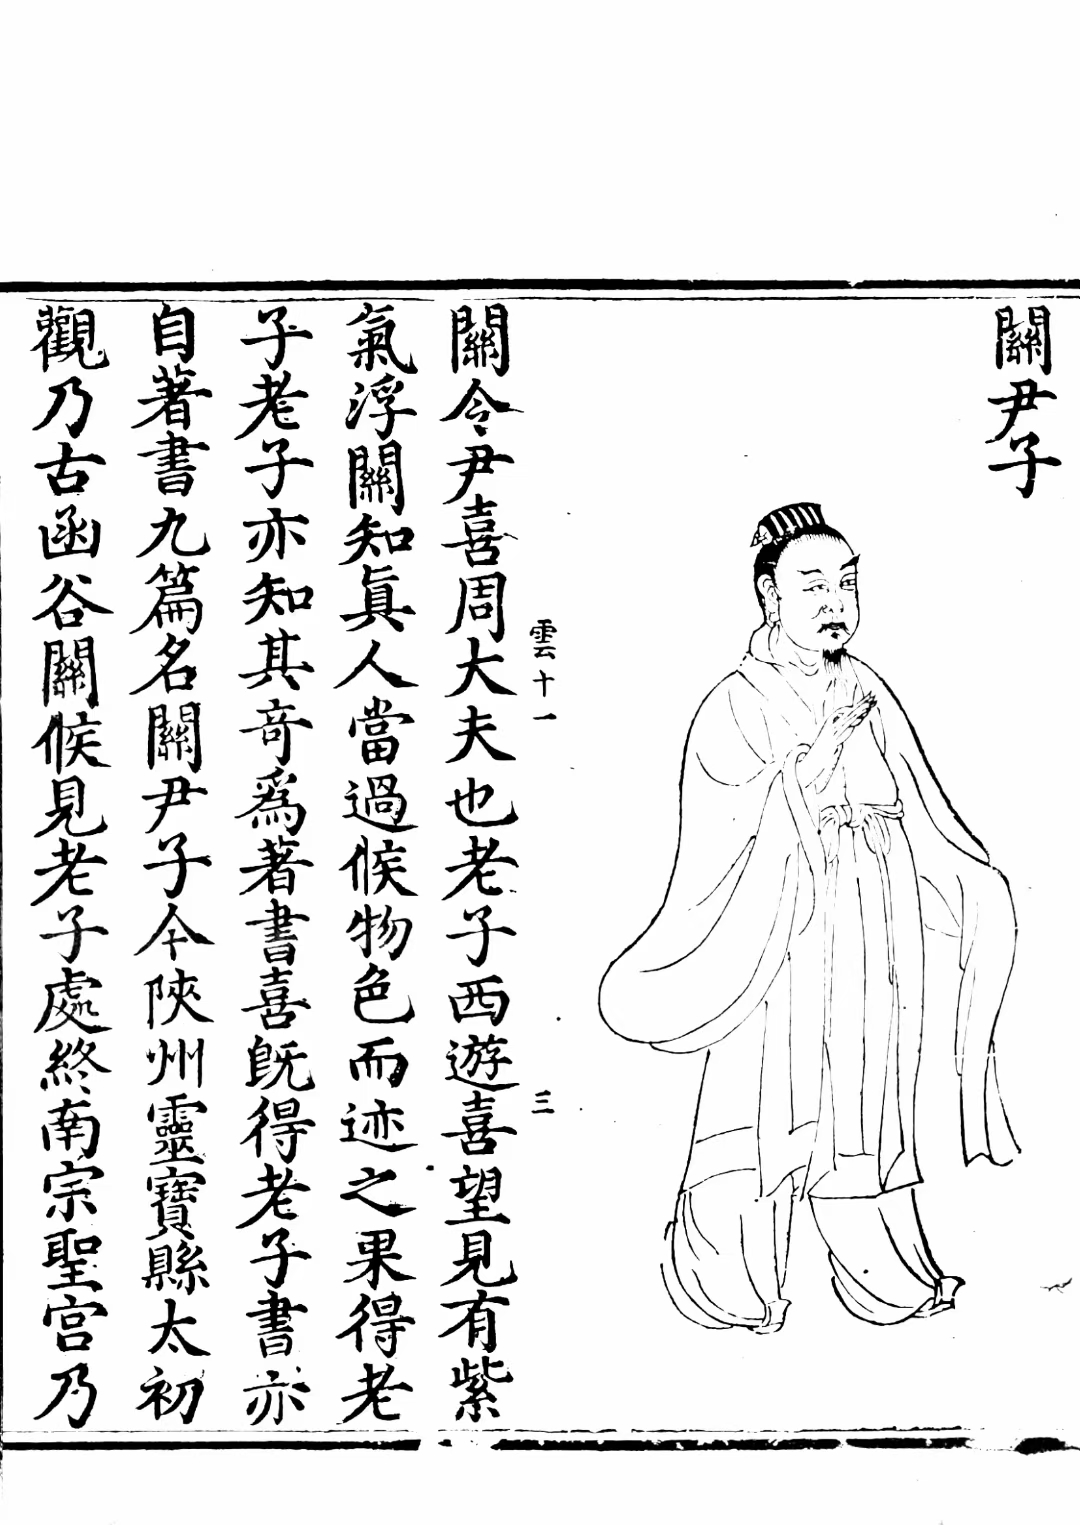 關尹子
雲十一
三
關令尹喜周大夫也老子西遊喜望見有紫
氣浮關知眞人當過候物色而迹之果得老
子老子亦知其奇爲著書喜旣得老子書亦
自著書九篇名關尹子今陝州靈寶縣太初
觀乃古函谷關候見老子處終南宗聖宫乃